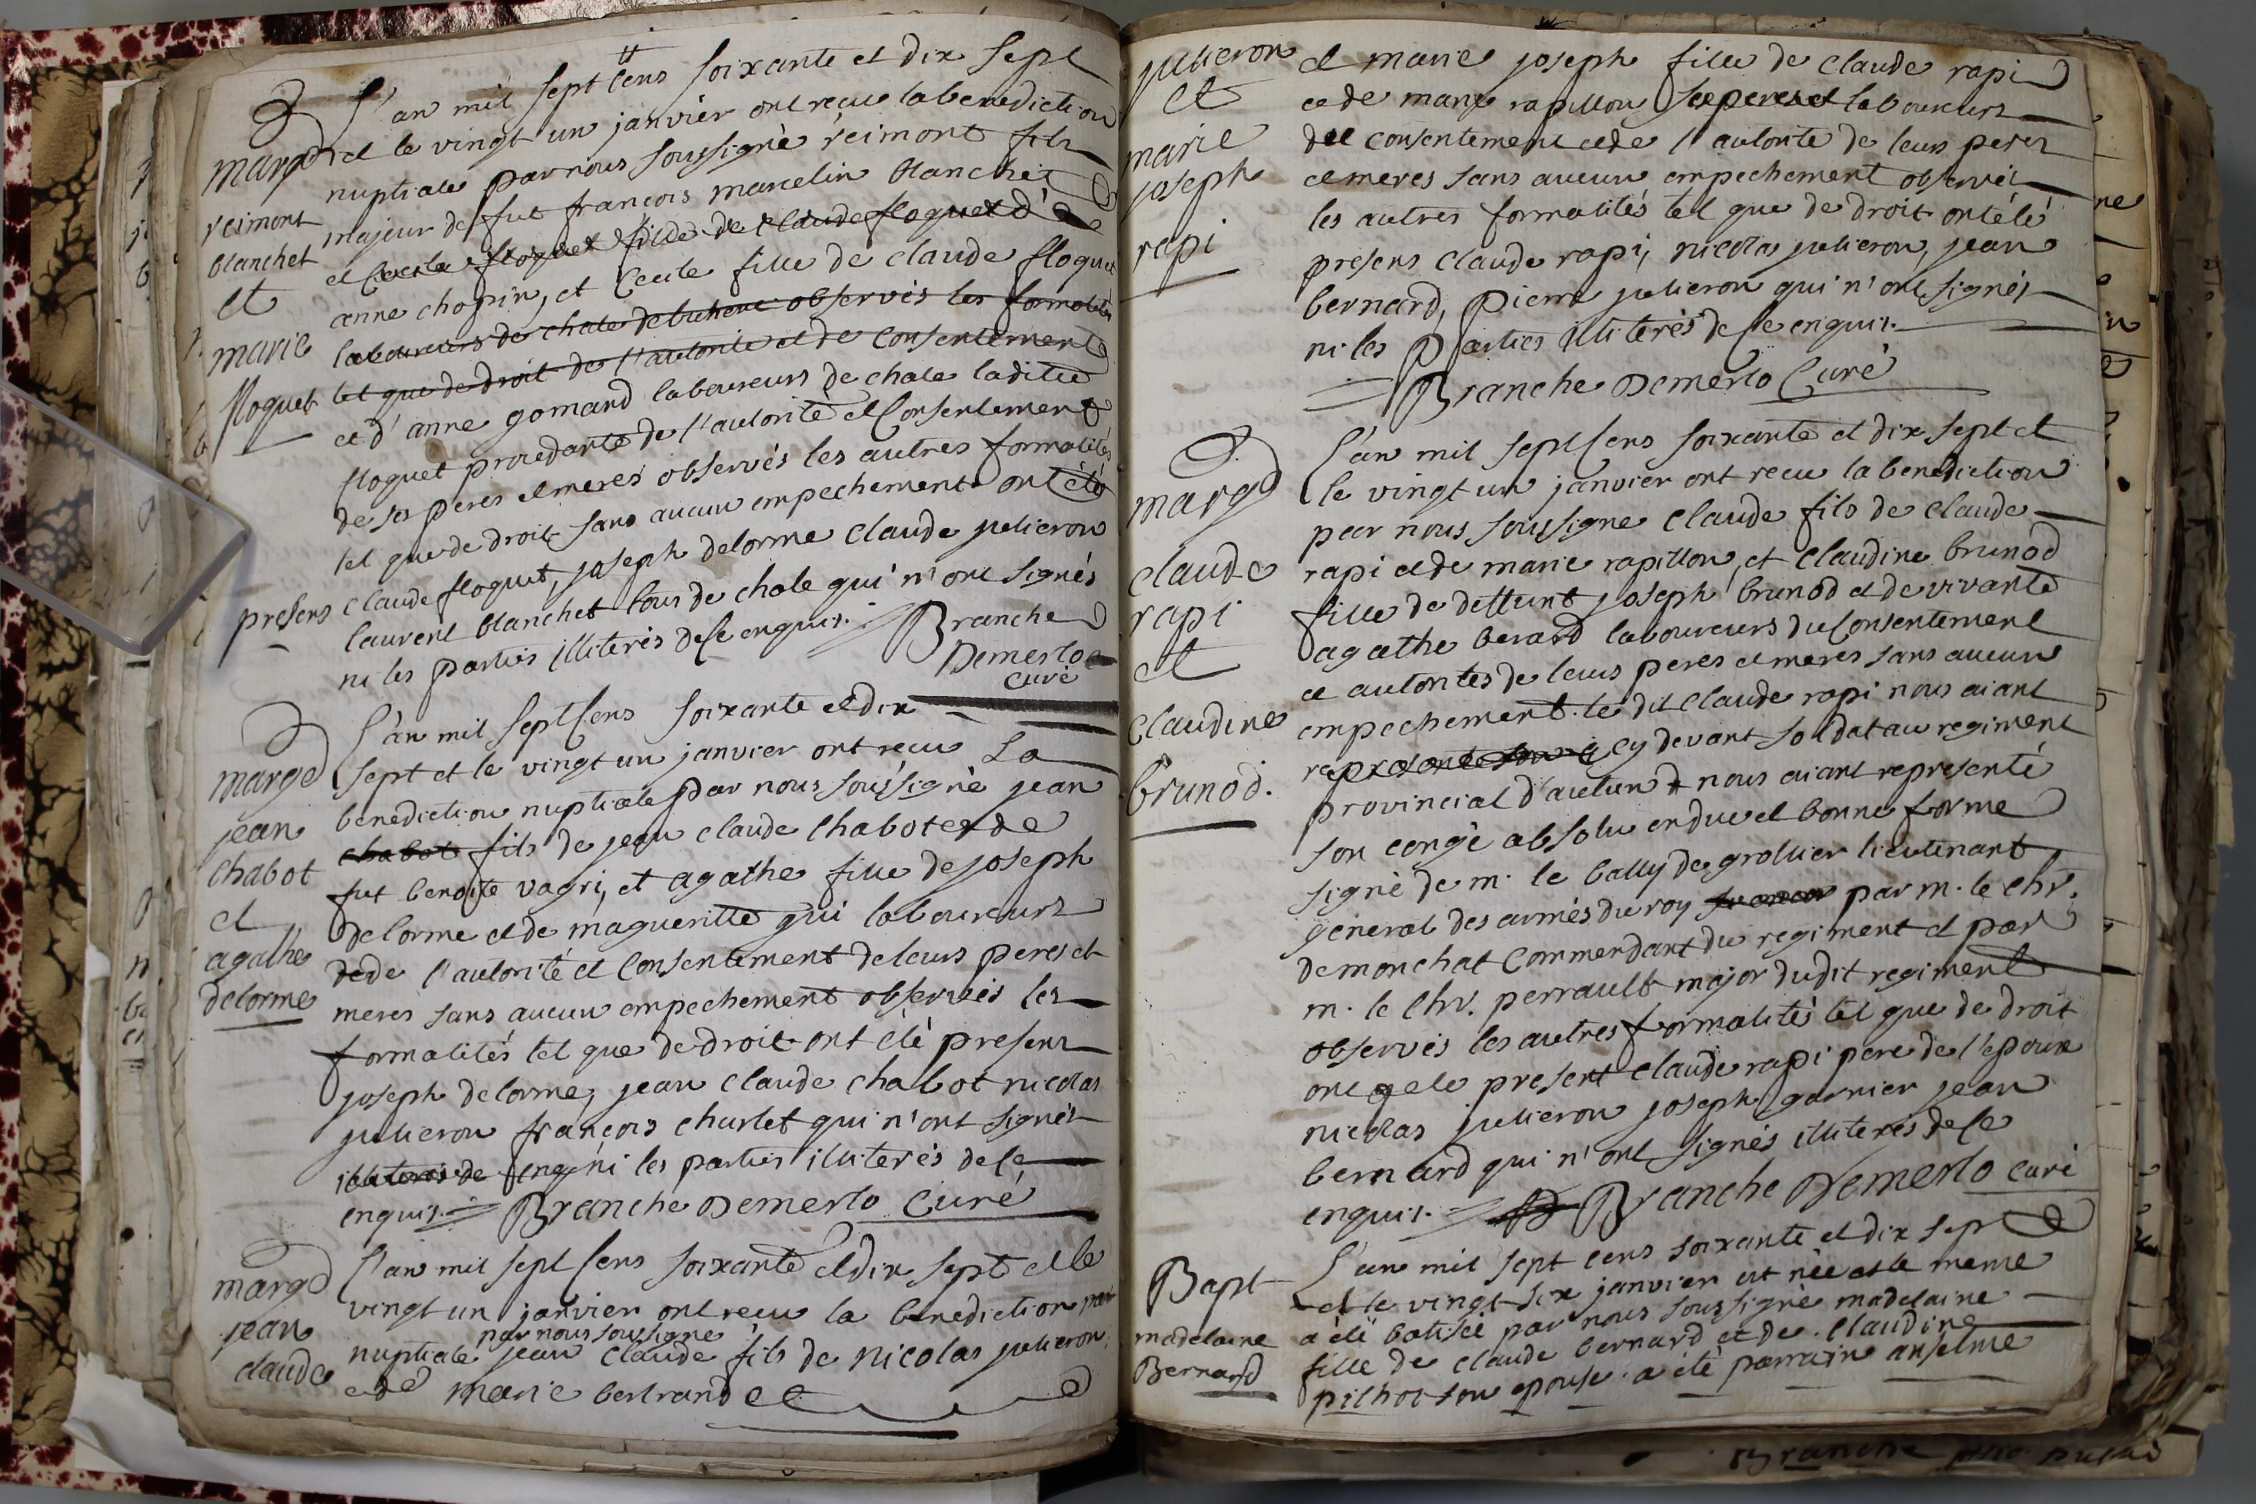 L'an mil sept cens soixante et dix sept
et le vingt un janvier ont recu la benediction
nuptiale par nous soussigné reimont fils
majeur de fut francois marcelin blanchet
et Cecile floquet fille de claude floquet d'
anne chopin, et Cecile fille de claude floquet
laboureurs de chale observés les formalités
tel que de droit de l'autorite et de consentement
et d'anne gomand laboureurs de chale laditte
floquet procedante de l'autorité et Consentement
de ses peres et meres observés les autres formalités
tel que de droit sans aucun empechement ont été
presens claude floquet, joseph delorme claude julieron
laurent blanchet tous de chale qui n'ont signés
ni les parties illiterés de ce enquis. Branche
Demerlo
curé
marg
reimont
blanchet
et
marie
floquet
L'an mil sept Cens soixante et dix
sept et le vingt un janvier ont recu La
benediction nuptiale par nous soussigné jean
chabot fils de jean claude Chabot et de
fut benoite vagri, et agathe fille de joseph
delorme et de magueritte gui laboureurs
de de l'autorité et Consentement de leurs peres et
meres sans aucun empechement observés les
formalités tel que de droit ont été presens
joseph delorme, jean claude chabot nicolas
julieron françois charlet qui n'ont signés
illiterés de enq ni les parties illiterés de ce
enquis. Branche Demerlo Curé
marg
jean
chabot
et
agathe
delorme
L'an mil sept Cens soixante et dix sept et le
vingt un janvier ont recu la benediction par
par nous soussigne
nuptiale jean claude fils de nicolas julieron
et de marie bertrand et
marg
jean
claude
julieron
et
marie
joseph
rapi
et marie joseph fille de claude rapi
et de marie rapillon laboureurs
de consentement et de l'autorite de leurs peres
et meres sans aucun empechement observés
les autres formalités tel que de droit ont été
presens claude rapi, nicolas julieron, jean
bernard, pierre julieron qui n'ont signés
ni les parties illiterés de ce enquis.
Branche Demerlo Curé
marg
claude
rapi
et
claudine
brunod.
L'an mil sept Cens soixante et dix sept et
le vingt un janvier ont recu la benediction
par nous soussigne claude fils de claude
rapi et de marie rapillon, et claudine brunod
fille de deffunt joseph brunod et de vivante
agathe berard laboureurs du Consentement
et autorites de leurs peres et meres sans aucun
empechement. le dit claude rapi nous aiant
represente son cy devant soldat au regiment
provincial d'autun nous aiant representé
son congé absolu en due et bonne forme
signé de m. le bally de grollier lieutenant
general des armés du roy par m. le chr.
de monchat Commendant du regiment et par
m. le Chr. perrault major dudit regiment
observés les autres formalités tel que de droit
ont été present claude rapi pere de l'epoux
nicolas julieron joseph garnier jean
bernard qui n'ont signés illiterés de ce
enquis. Branche Demerlo curé
Bapt
madelaine
Bernard
L'an mil sept cens soixante et dix sep
et le vingt six janvier est née et le meme
a été batisée par nous soussigné madelaine
fille de claude bernard et de claudine
pilhot son epouse. a été parrain anselme